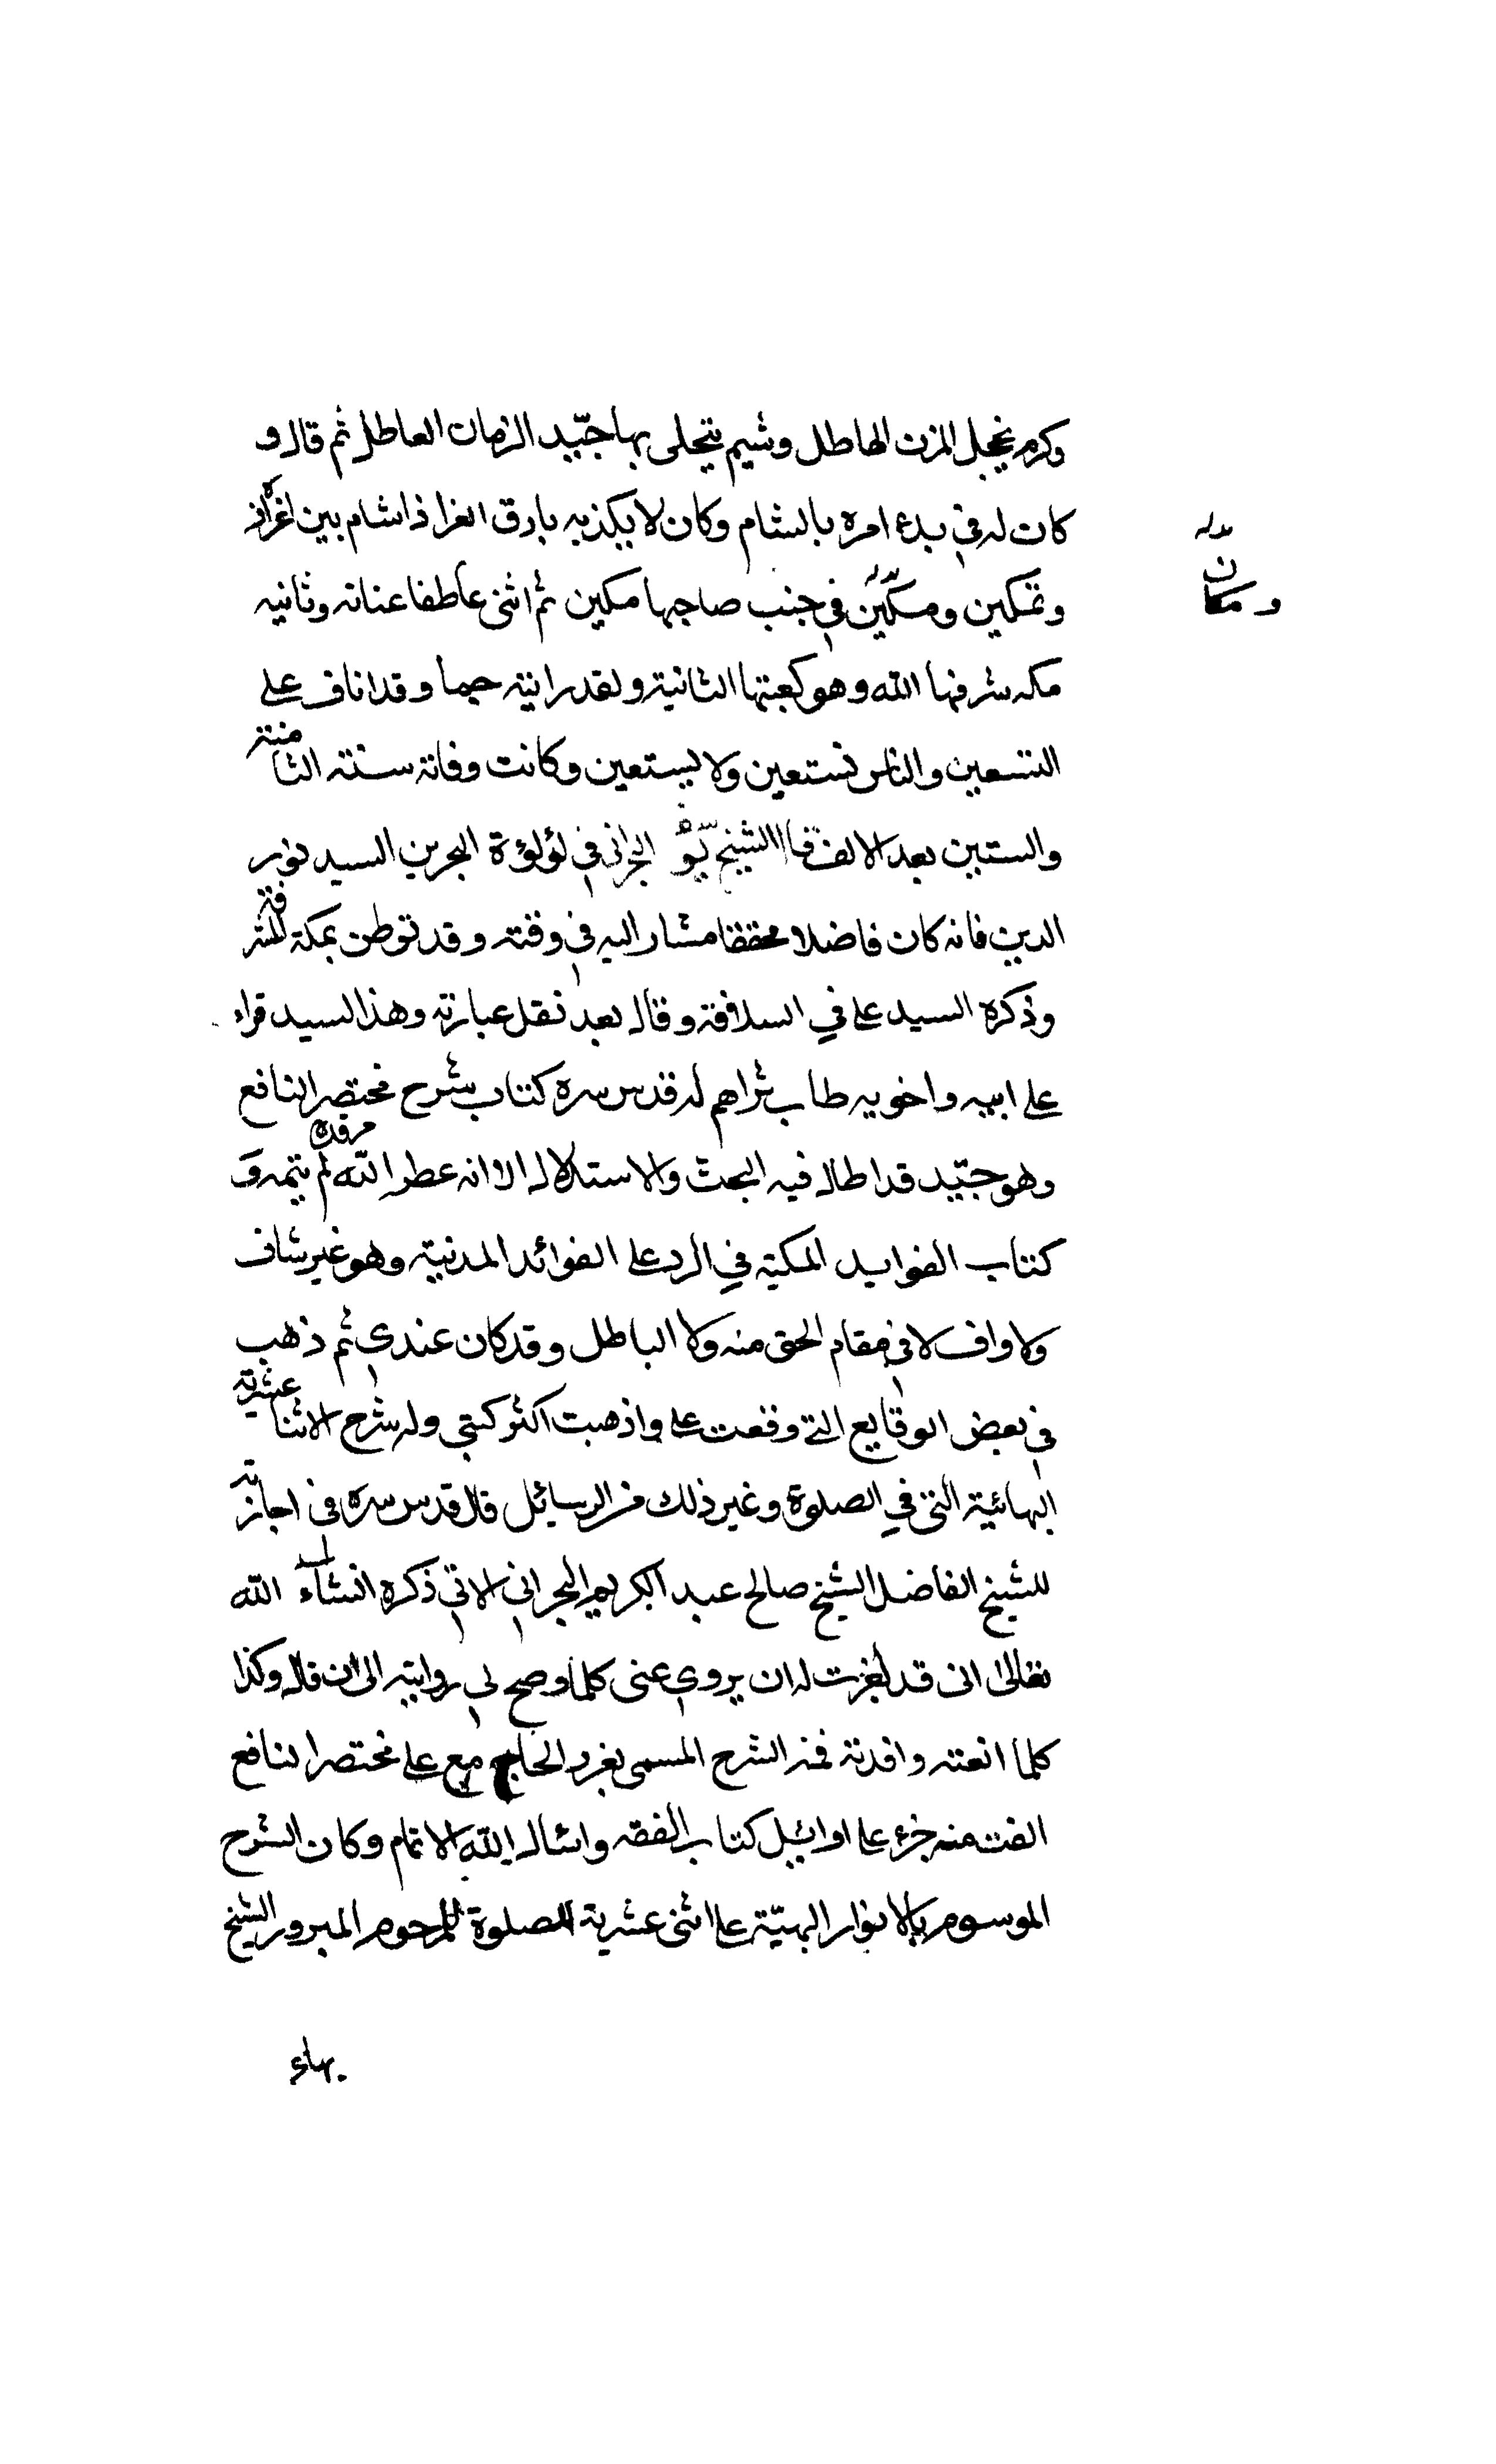 وكرم يخجل المزن الهاطل وشيم يتحلى بها جيّد الزمان العاطل ثم قال و
كان له في بدء امره بالشام وكان لا يكذبه بارق العز اذا شام بين اعزاز
وتمكين ومكين في جنب صاحبها مكين ثم اثنى عاطفا عنانه وثانيه
بدله
ومكان
مكه شرفها الله وهو كعبتها الثانية ولقد رايته حيها وقد اناف على
التسعين والناس تستعين ولا يستعين وكانت وفاته سنته الثامنة
والستين بعد الالف قال الشيخ يو البحراني في لؤلؤة البحرين السيد نور
الدين فانه كان فاضلا محققا مشار اليه في وقته وقد توطن بمكة المشرفة
وذكره السيد على في السلافة وقال بعد نقل عبارته وهذا السيد قراء
على ابيه واخويه طاب ثراهم له قدس سره كتاب شرح مختصر النافع
وهو جيّد قد اطال فيه البحث والاستدلال الا انه عطر الله مرقده لم يتمه و
كتاب الفوايد المكية في الرد على الفوائد المدنية وهو غير شاف
ولا واف لا في مقام الحق منه ولا الباطل وقد كان عندي ثم ذهب
في بعض الوقايع التي وقعت على واذهبت اكثر كتبي وله شرح الاثنا عشرية
البهائية التي في الصلوة وغير ذلك من الرسائل قال قدس سره في اجازته
للشيخ الفاضل الشيخ صالح عبد الكريم البحراني الاتي ذكره انشاء الله
تعالى اني قد اجزت له ان يروي عني كلما وضح لي روايته الى ان قال وكذا
كلما الفته وافدته فمنه الشرح المسمى بغرر الجامع على مختصر النافع
الفت منه جزء على اوائيل كتاب الفقه واسال الله الاتمام وكان الشرح
الموسوم بالانوار البهيّة على اثنى عشرية الصلوة للمرحوم المبرور الشيخ
بهاء